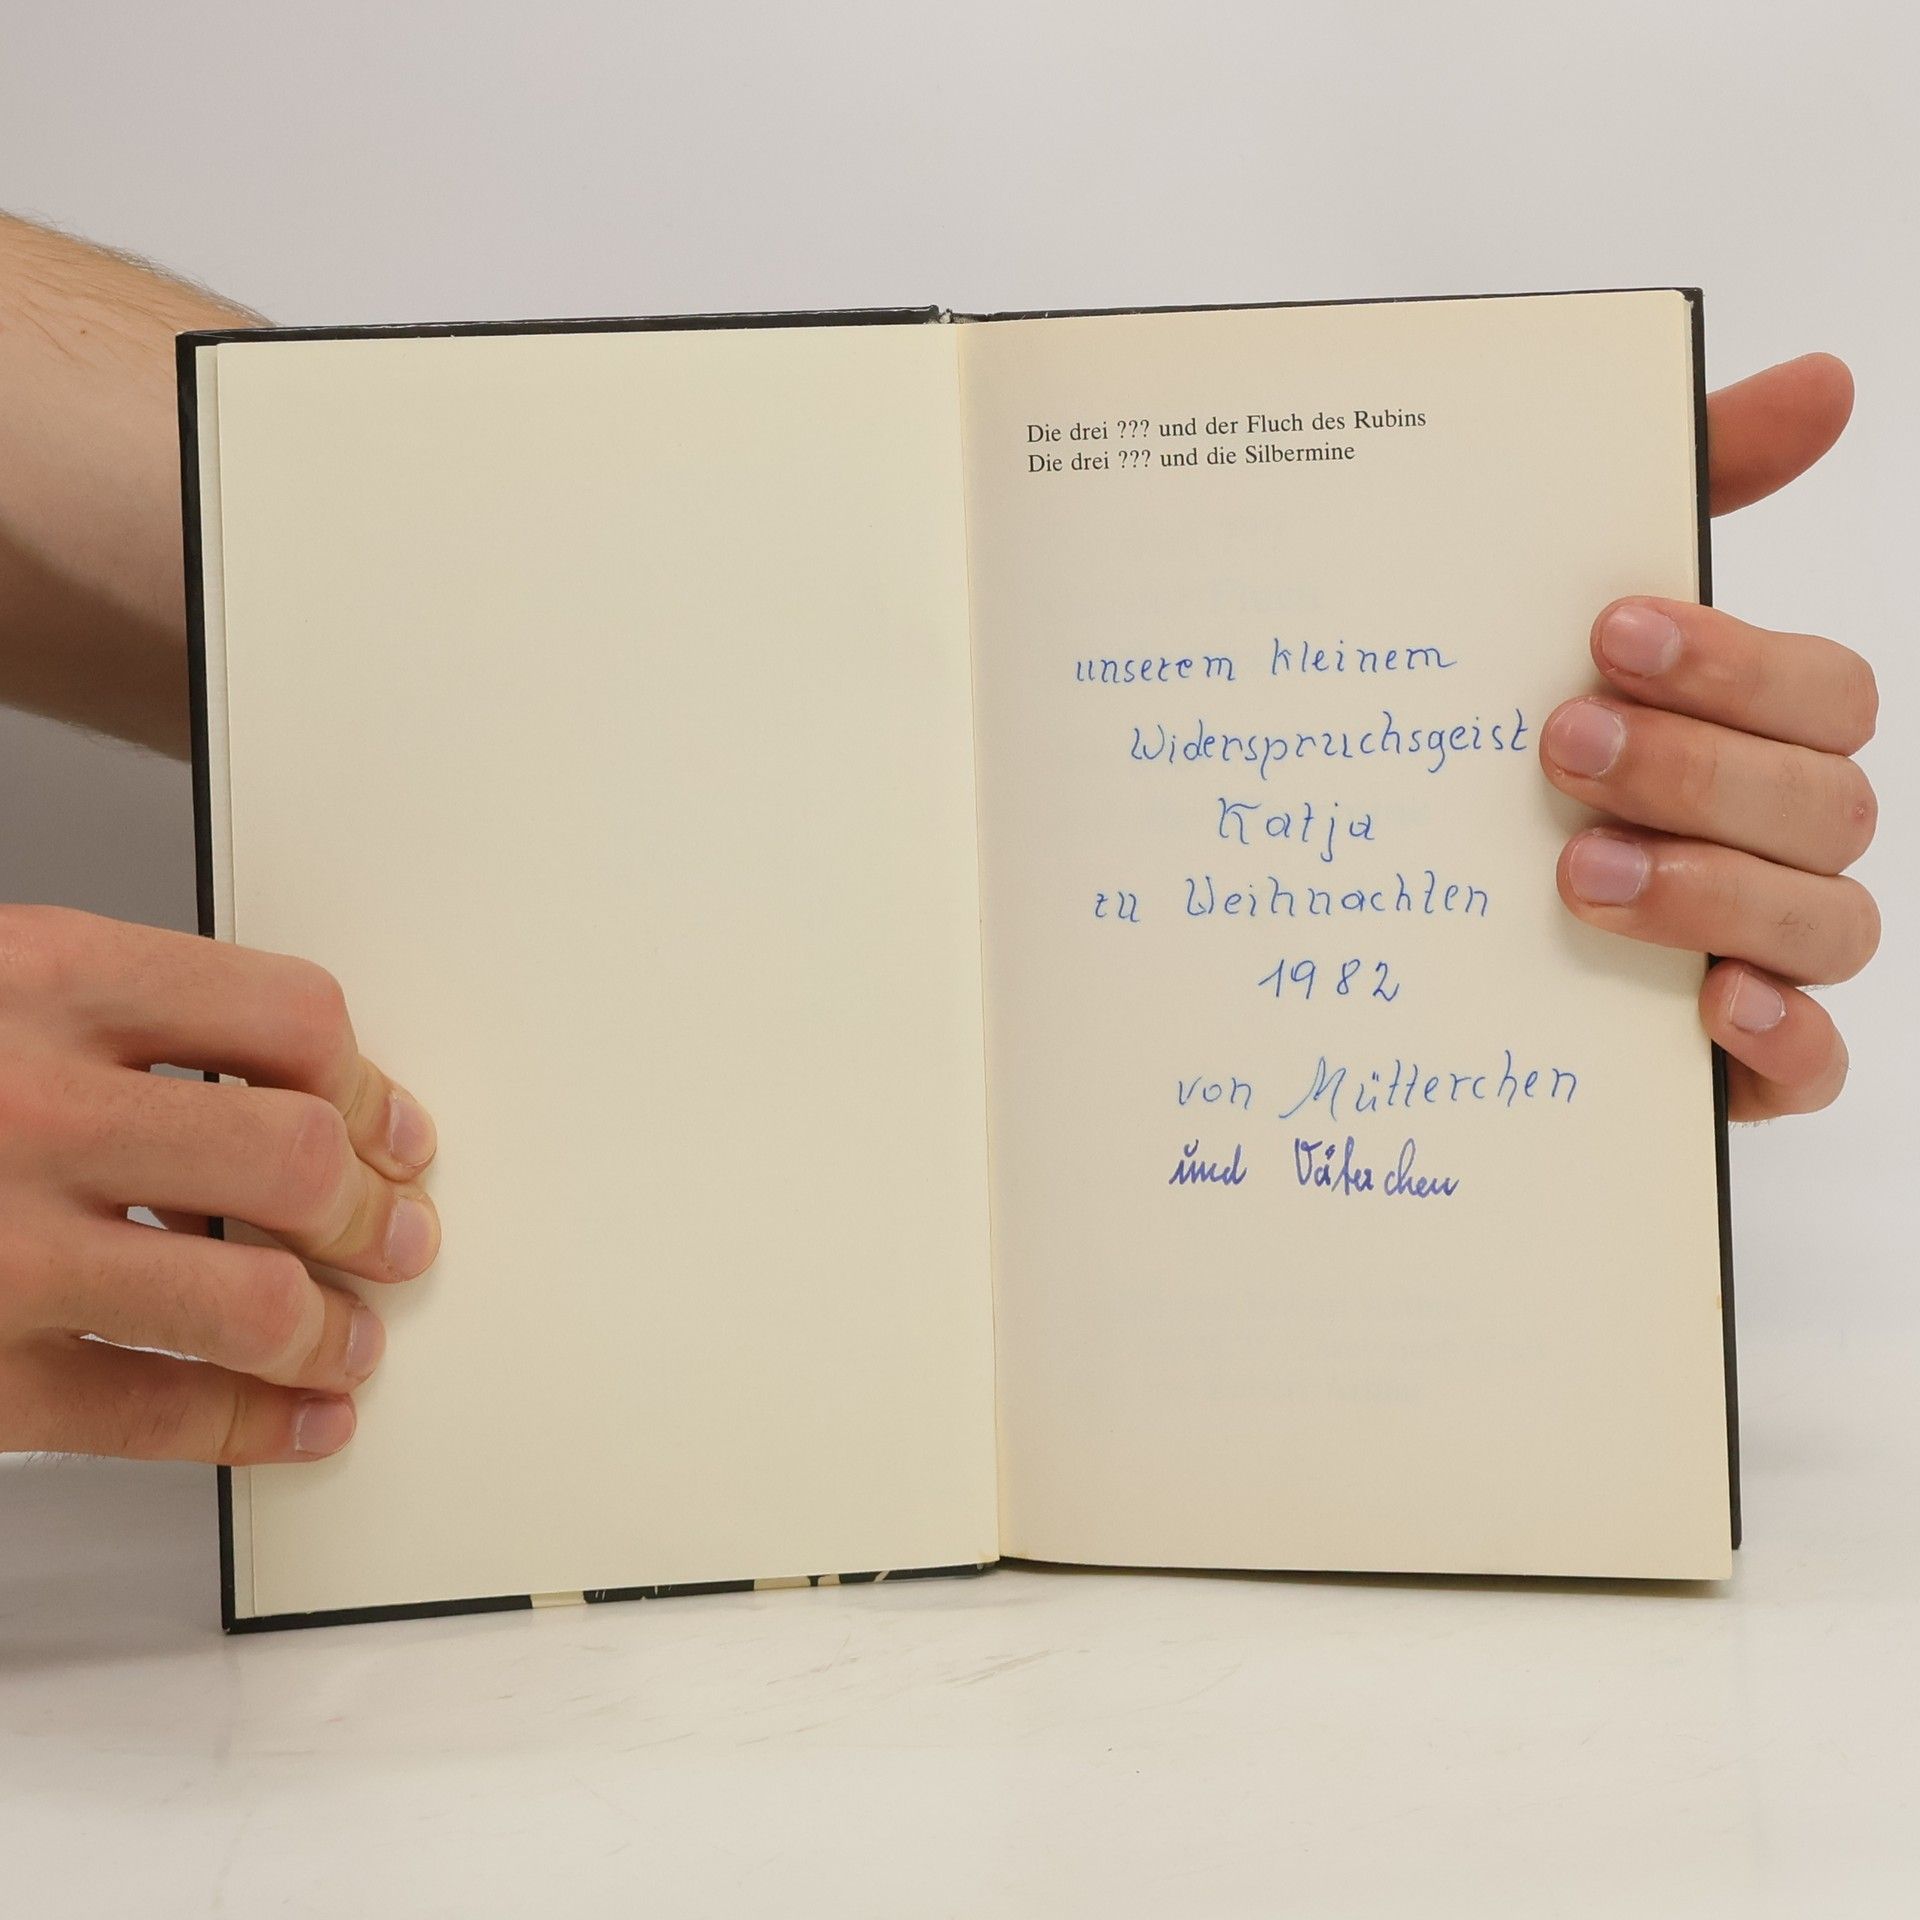 Die drei ??? und der Fluch des Rubins
Die drei ??? und die Silbermine
unserem kleinem
Widerspruchsgeist
Katja
zu Weihnachten
1982
von Mütterchen
und Väterchen